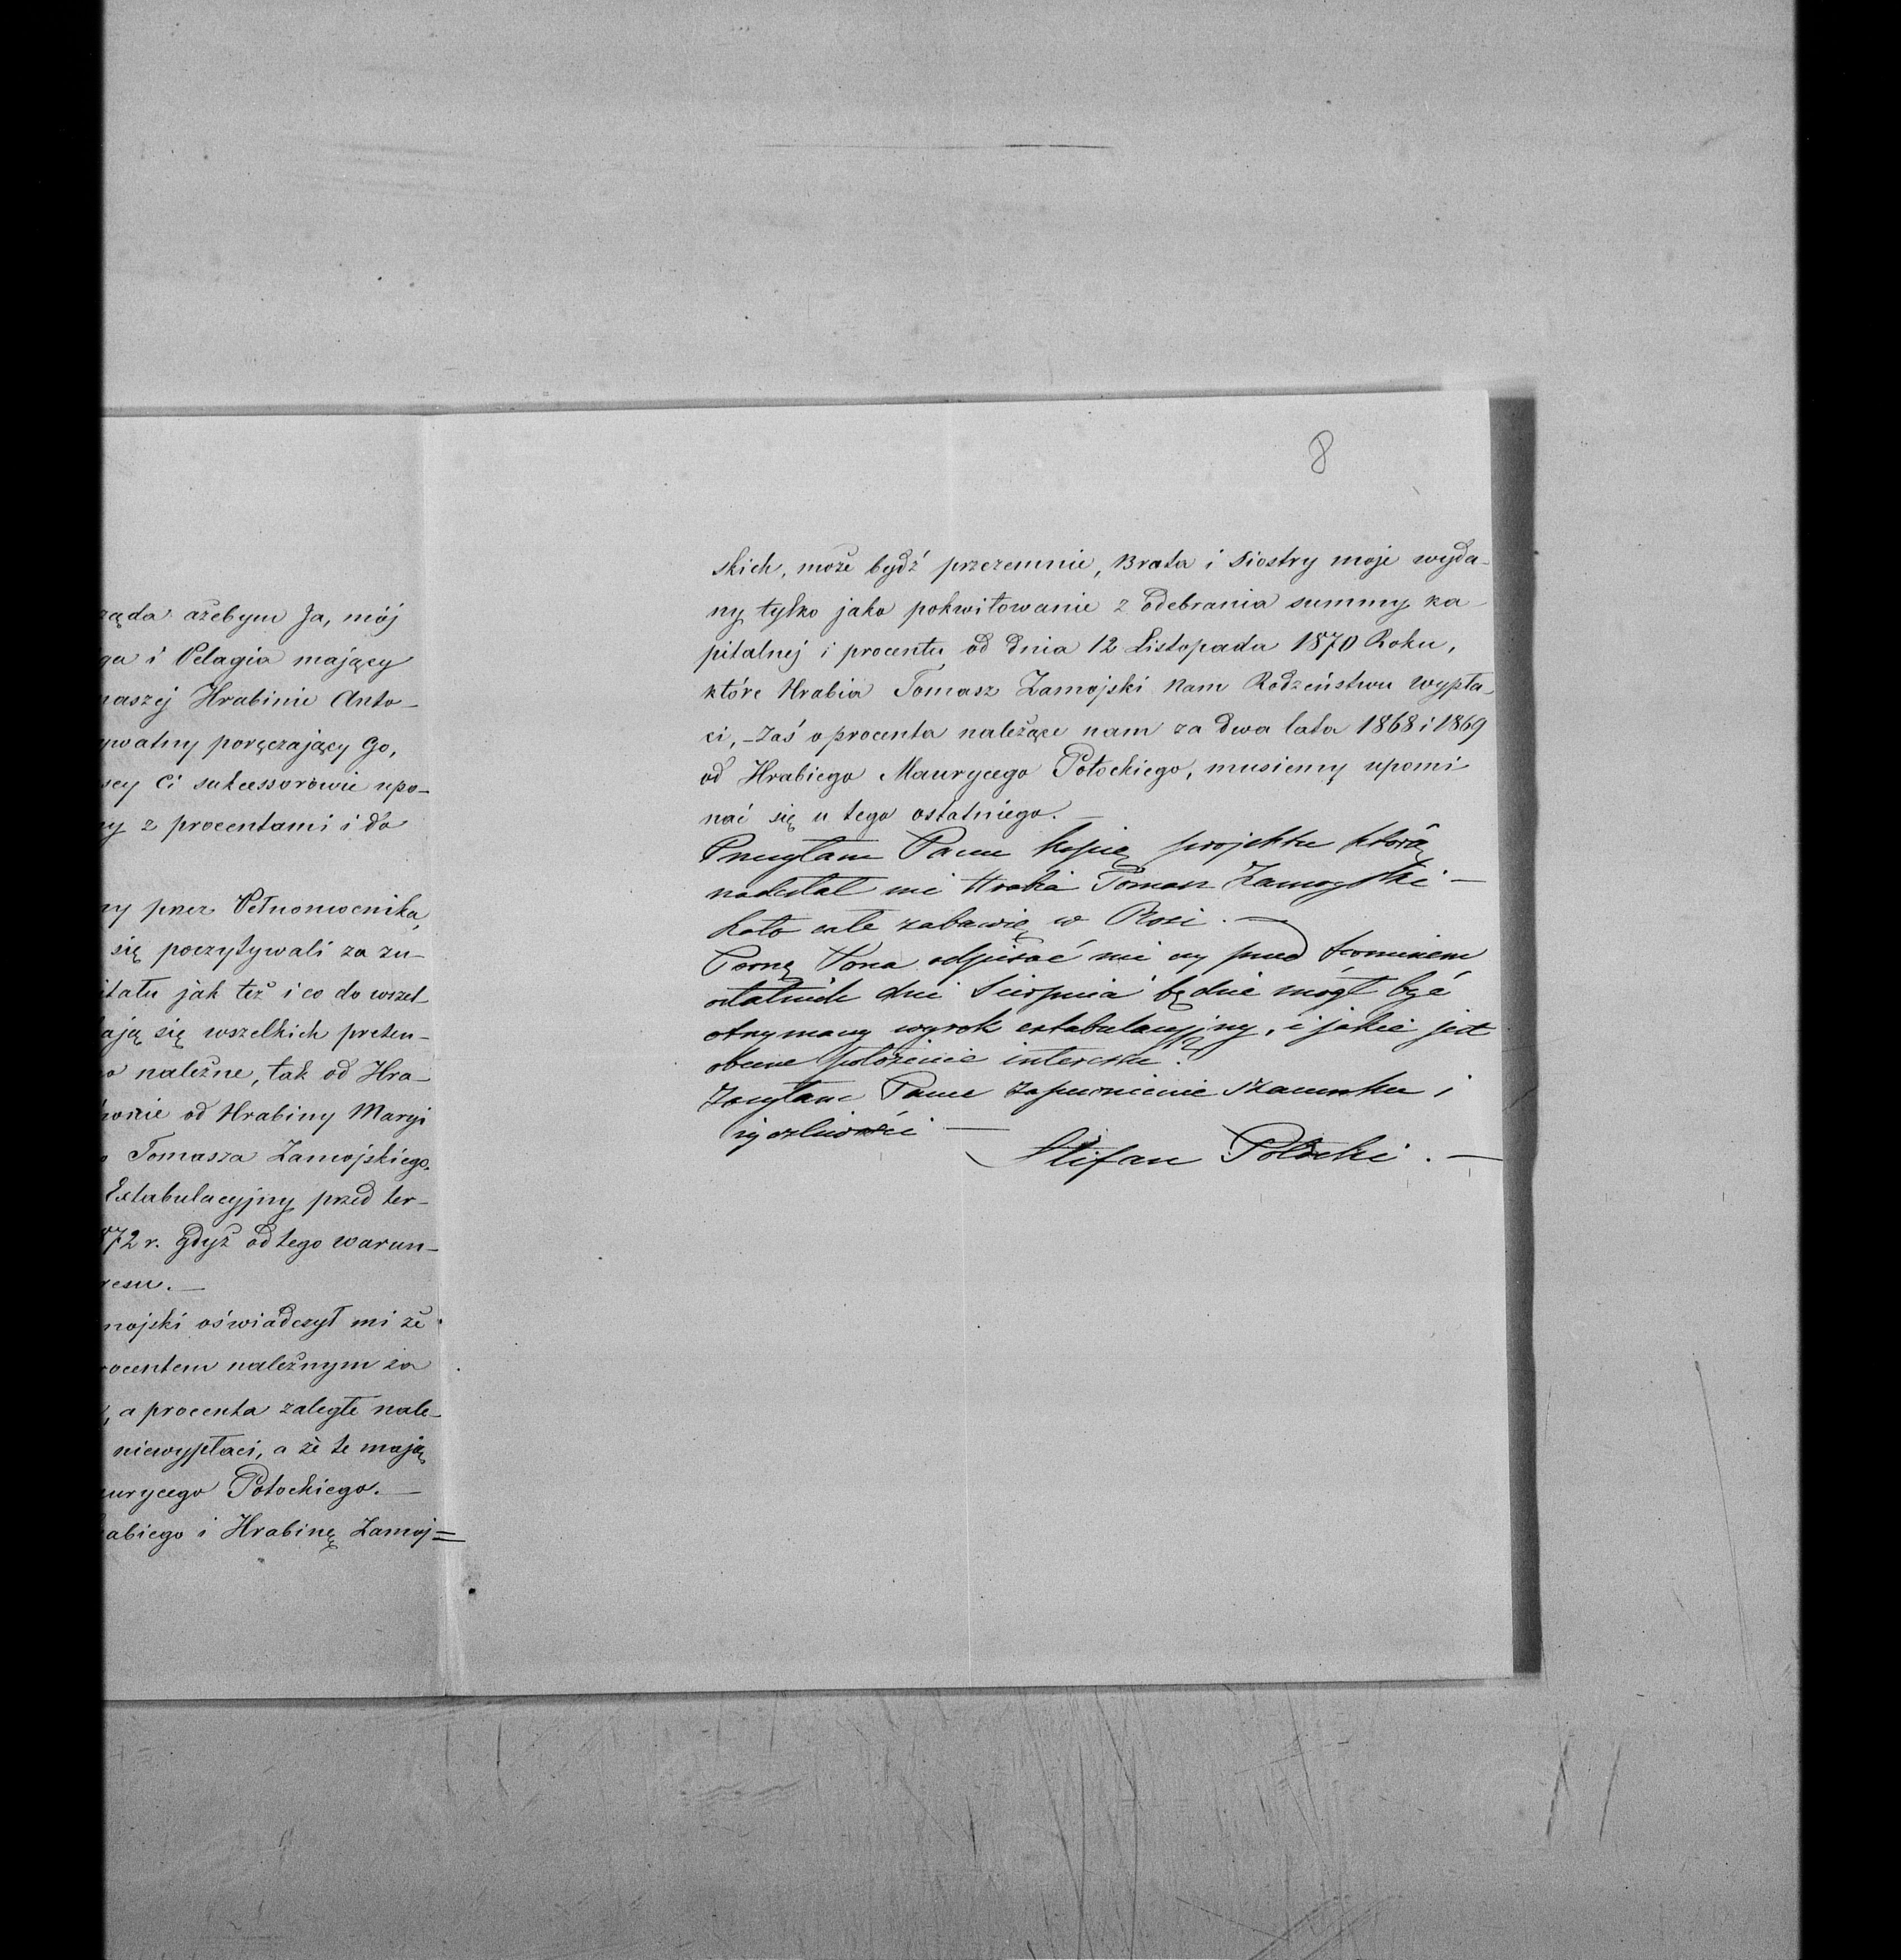 ażebym Ja, mój
i Pelagia mający
naszej Hrabinie Anto-
poręczający Go,
Ci sukcessorowie upo-
z procentami i do
przez Pełnomocnika,
się poczytywali za zu-
jak też i co do wszel-
się wszelkich preten-
należne, tak od Hra-
od Hrabiny Maryi
Tomasza Zamojskiego.
Extabulacyjny przed ter-
72 r. Gdyż od tego warun-
resu.—
mojski oświadczył mi że
rocentem należnym za
, a procenta zaległe nale-
niewypłaci, a że te mają
urycego Potockiego.—
abiego i Hrabinę Zamoj=
8
skich, może bydź przezemnie, Brata i Siostry moje wyda-
ny tylko jako pokwitowanie z odebrania summy ka-
pitalnej i procentu od dnia 12 Listopada 1870 Roku,
które Hrabia Tomasz Zamojski Nam Rodzeństwu wypła-
ci,—Zaś o procenta należące nam za dwa lata 1868 i 1869
od Hrabiego Maurycego Potockiego, musiemy upomi
nać się u tego ostatniego.—
Przesyłam Panu kopię projektu którą
nadesłał mi Hrabia Tomasz Zamoyski—
Lato całe zabawię w Rosi.—
Proszę Pana odpisać mi czy przed terminem
ostatnich dni Sierpnia będzie mógł być
otrzymany wyrok extabulacyjny, i jakie jest
obecne położenie interesu?
Zasyłam Panu zapewnienie szacunku i
życzliwości—
Stefan Potocki.—